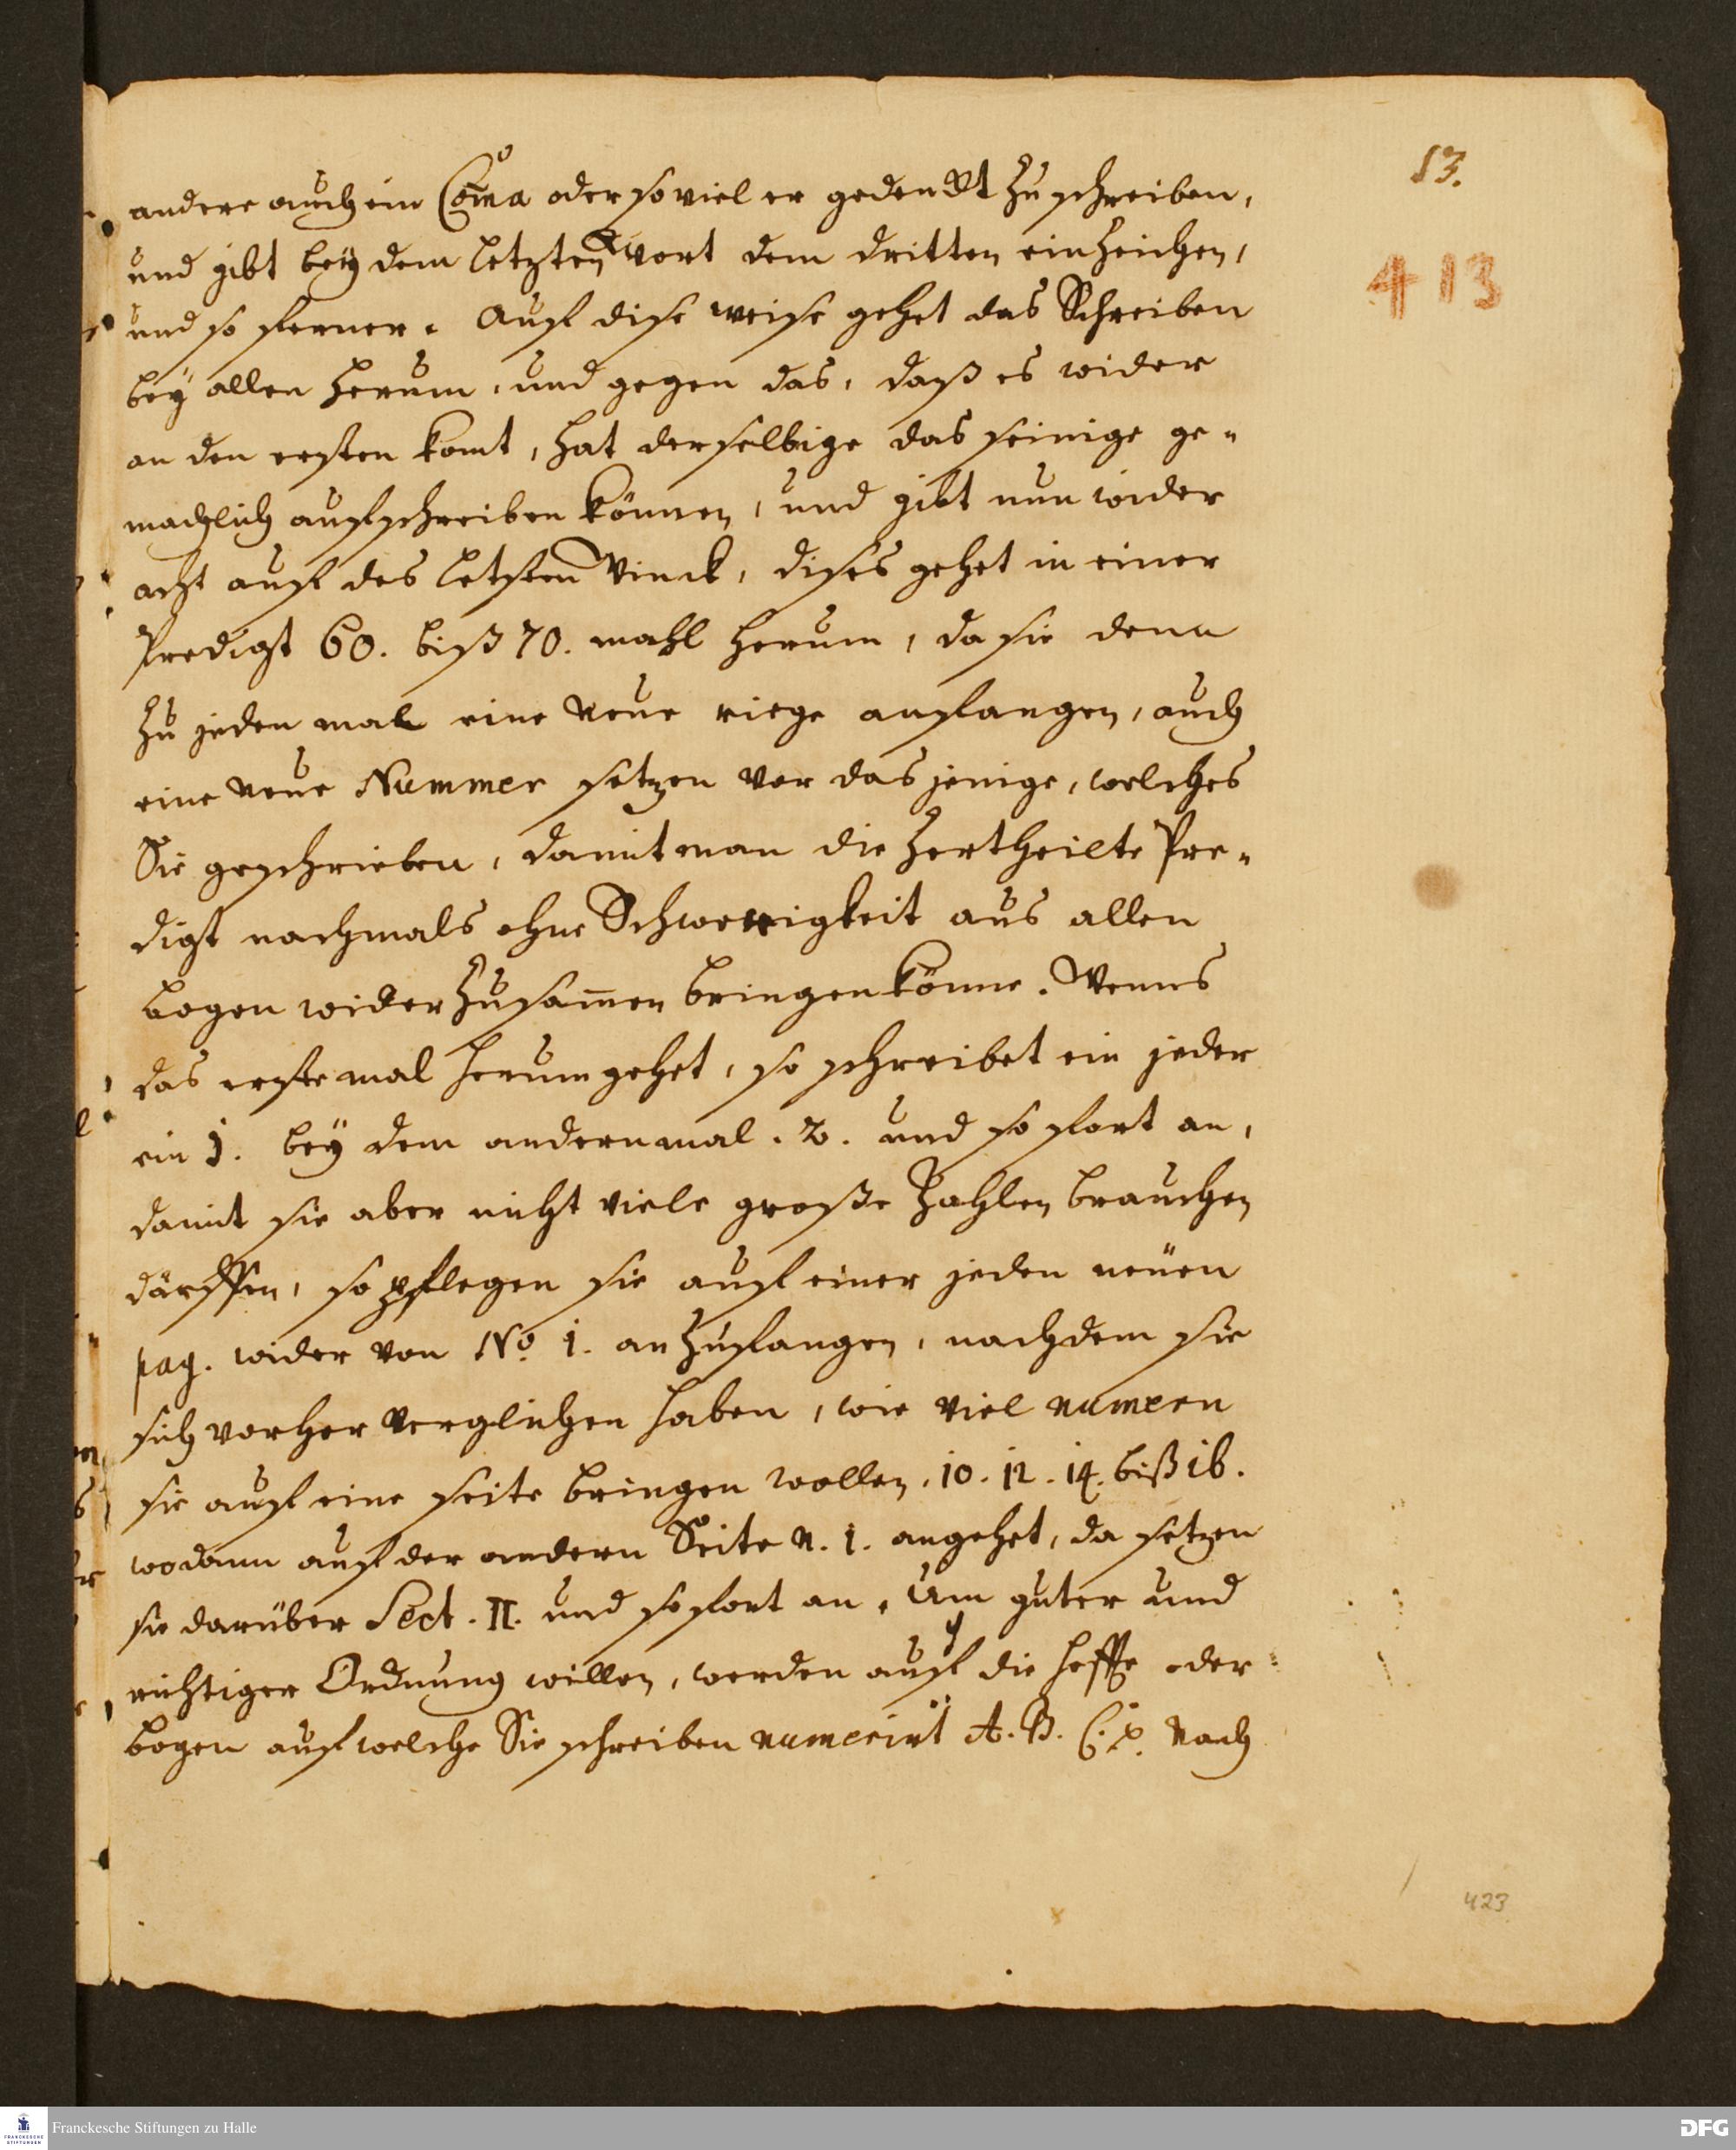 53.
413
andere auch ein Com̄a oder so viel er gedenckt zu schreiben,
und gibt bey dem letzten Wort dem dritten ein zeichen,
und so ferner. Auf dise weise gehet das Schreiben
bey allen herum, und gegen das, daß es wider
an den ersten komt, hat derselbige das seinige ge-
machlich aufschreiben können, und gibt nun wider
acht auf des letsten Winck, dises gehet in einer
Predigt 60. biß 70. mahl herum, da sie denn
zu jeden mal eine neue riege anfangen, auch
eine neue Nummer setzen vor das jenige, welches
Sie geschrieben, damit man die zertheilte Pre-
digt nachmals ohne Schwerigkeit aus allen
bogen wider zusam̄en bringen könne. Wenns
das erste mal herum gehet, so schreibet ein jeder
ein 1. bey dem andern mal. 2. und so fort an,
damit sie aber nicht viele große Zahlen brauchen
därffen, so pflegen sie auf einer jeden neüen
pag. wider von No. 1. anzufangen, nachdem sie
sich vorher verglichen haben, wie viel numern
sie auf eine seite bringen wollen, 10. 12. 14. biß 16.
wo dann auf der andern Seite N. 1. angehet, da setzen
sie darüber Sect. II. und so fort an. Um guter und
richtiger Ordnung willen, werden auch die heffte oder
bogen auf welche Sie schreiben numerirt A. B. C. D. Nach
423
Franckesche Stiftungen zu Halle
FRANCKESCHE
STIFTUNGEN
DFG